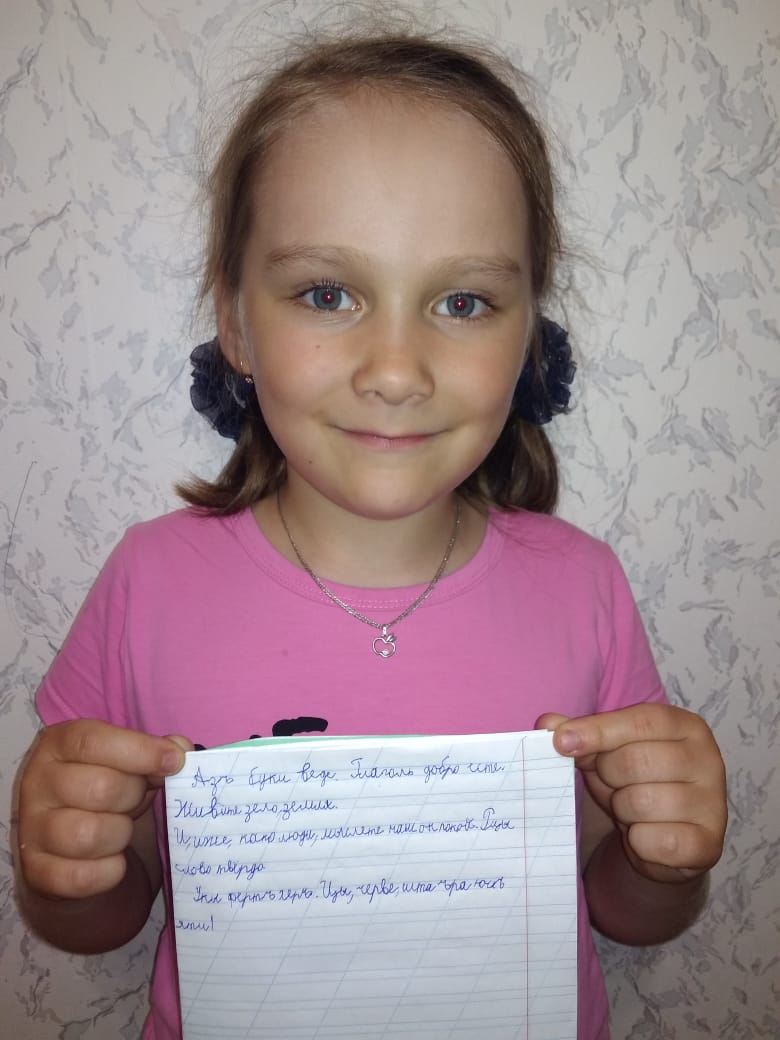 Азъ буки веде. Глаголь добро есте.
Живите зело, земля.
И, иже, како люди, мыслете наш он покой. Рцы
слово твердо
Укъ фертъ херъ. Цы, черве, шта ъра юсъ
яти!